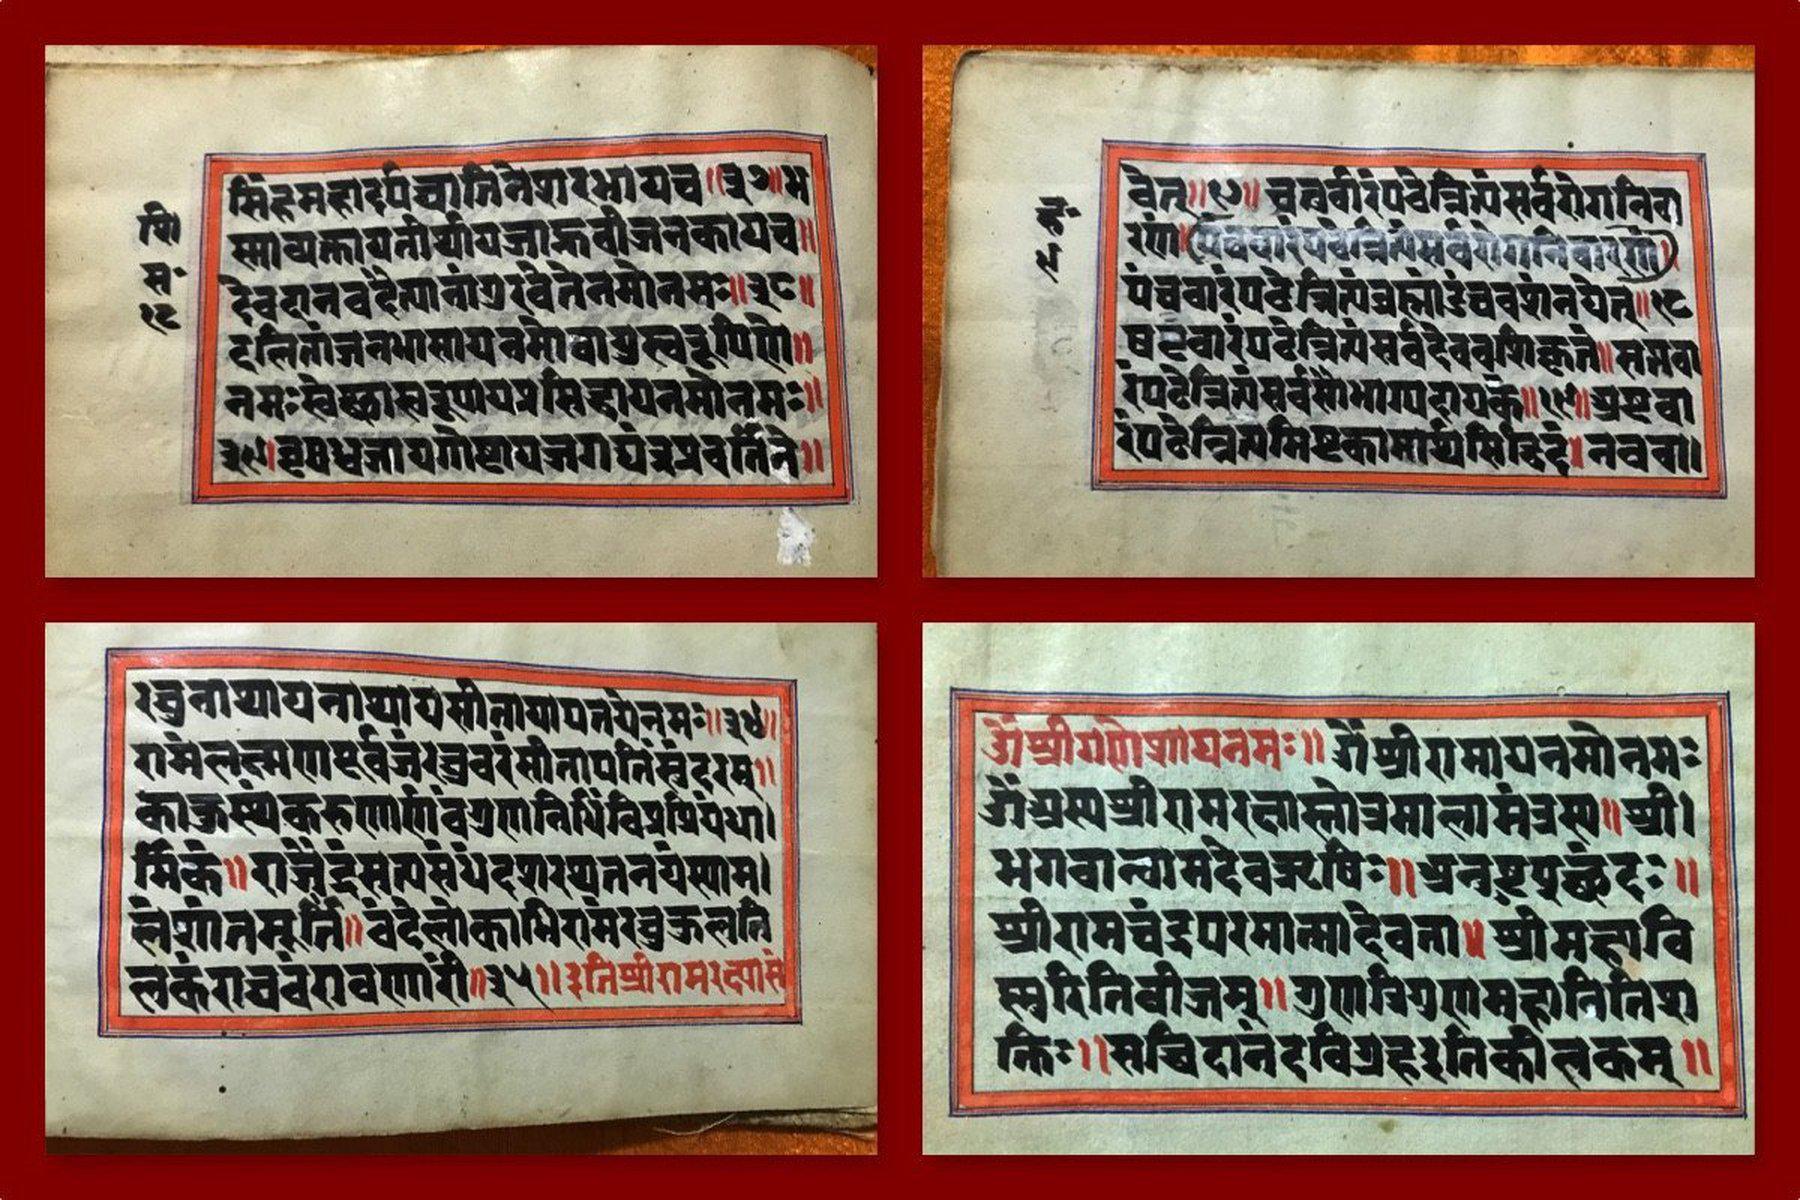 सिंहमहादर्पघ्वातिनेशरभायच॥३७॥भ
स्माव्यक्तायतीर्थायजाह्नवीजनकायच॥
देवदानवदैत्यानांगुरवेतेनमोनमः॥३८॥
दलितांजनभासायनमोवायुस्वरूपिणे॥
नमःस्वेच्छास्वरूपायप्रसिद्धायनमोनमः॥
३९॥वृषध्वजायगोष्टायजगद्यंत्रप्रवर्तिने॥
शि।
स॰
१८
वेत्॥१७॥चतुर्वारंपठेन्नित्यंसर्वरोगनिवा
रणं॥
पंचवारंपठेन्नित्यंब्रह्मांडंचवशंनयेत्॥१८
षष्टवारंपठेन्नित्यंसर्वदेववशिकृतं॥सप्तवा
रंपठेन्नित्यंसर्वसौभाग्यदायकं॥१९॥अष्टवा
रंपठेन्नित्यमिष्टकामार्थसिद्धिदं॥नववा।
रघुनाथायनाथायसीतायापतयेनमः॥३४॥
रामंलक्ष्मणपूर्वजंरघुवरंसीतापतिंसुंदरम्॥
काकुस्थंकरुणार्णवंगुणनिधिंविप्रप्रियंधा।
र्मिकं॥राजेंद्रंसत्यसंधंदशरथतनयंस्याम।
लंशांतमूर्तिं॥वंदेलोकाभिरामंरघुकुलति
लकंराघवंरावणारीं॥३५॥इतिश्रीरामरक्ष्यासं
ॐश्रीगणेशायनमः॥ॐश्रीरामायनमोनमः
ॐअस्यश्रीरामरक्षास्तोत्रमालामंत्रस्य॥श्री।
भगवान्वामदेवऋषिः॥अनुष्टपछंदः॥
श्रीरामचंद्रपरमात्मादेवता॥श्रीमहावि
ष्णुरितिबीजम्॥गुणत्रिगुणमहानितिश
क्तिः॥सच्चिदानंदविग्रहइतिकीलकम्॥